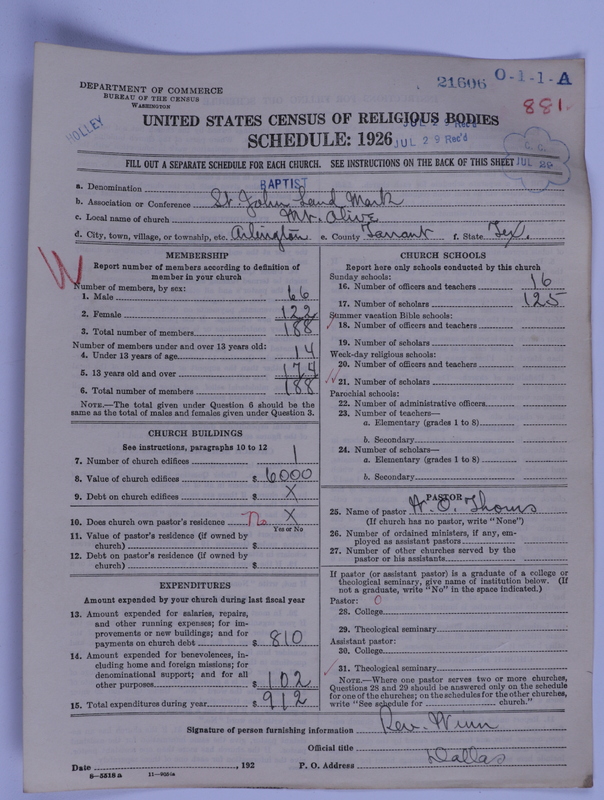 DEPARTMENT OF COMMERCE
BUREAU OF THE CENSUS
WASHINGTON
21606 O-1-1-A
881
HOLLEY
UNITED STATES CENSUS OF RELIGIOUS BODIES
SCHEDULE: 1926
JUL 29 Rec'd
FILL OUT A SEPARATE SCHEDULE FOR EACH CHURCH. SEE INSTRUCTIONS ON THE BACK OF THIS SHEET
C. G.
JUL 29
a. Denomination BAPTIST
b. Association or Conference St. John Land Mark
c. Local name of church Mt. Alive
d. City, town, village, or township, etc. Arlington e. County Tarrant f. State Tex.
W
MEMBERSHIP
Report number of members according to definition of
member in your church
Number of members, by sex:
1. Male 66
2. Female 122
3. Total number of members 188
Number of members under and over 13 years old:
4. Under 13 years of age 14
5. 13 years old and over 174
6. Total number of members 188
NOTE.—The total given under Question 6 should be the
same as the total of males and females given under Question 3.
CHURCH BUILDINGS
See instructions, paragraphs 10 to 12
7. Number of church edifices 1
8. Value of church edifices $ 6000
9. Debt on church edifices $ X
10. Does church own pastor's residence No X
Yes or No
11. Value of pastor's residence (if owned by
church) $
12. Debt on pastor's residence (if owned by
church) $
EXPENDITURES
Amount expended by your church during last fiscal year
13. Amount expended for salaries, repairs,
and other running expenses; for im-
provements or new buildings; and for
payments on church debt $ 810
14. Amount expended for benevolences, in-
cluding home and foreign missions; for
denominational support; and for all
other purposes $ 102
15. Total expenditures during year $ 912
CHURCH SCHOOLS
Report here only schools conducted by this church
Sunday schools:
16. Number of officers and teachers 16
17. Number of scholars 125
Summer vacation Bible schools:
18. Number of officers and teachers
19. Number of scholars
Week-day religious schools:
20. Number of officers and teachers
21. Number of scholars
Parochial schools:
22. Number of administrative officers
23. Number of teachers—
a. Elementary (grades 1 to 8)
b. Secondary
24. Number of scholars—
a. Elementary (grades 1 to 8)
b. Secondary
PASTOR
25. Name of pastor
(If church has no pastor, write "None")
26. Number of ordained ministers, if any, em-
ployed as assistant pastors
27. Number of other churches served by the
pastor or his assistants
If pastor (or assistant pastor) is a graduate of a college or
theological seminary, give name of institution below. (If
not a graduate, write "No" in the space indicated.)
Pastor: 0
28. College
29. Theological seminary
Assistant pastor:
30. College
31. Theological seminary
NOTE.—Where one pastor serves two or more churches,
Questions 28 and 29 should be answered only on the schedule
for one of the churches; on the schedules for the other churches,
write "See schedule for church."
Signature of person furnishing information Rev. Winn
Official title
Date , 192 P. O. Address Dallas
8—5318a 11—9051a